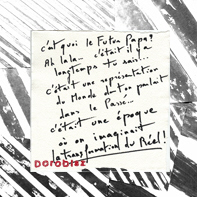 c'at quoi le Futur Papa?
Ah lala... c'était il y a
longtemps tu sais...
c'était une représentation
du Monde dont on parlait
dans le Passé...
c'était une époque
où on imaginait
la transformation du Réel!
DOROBIAZ